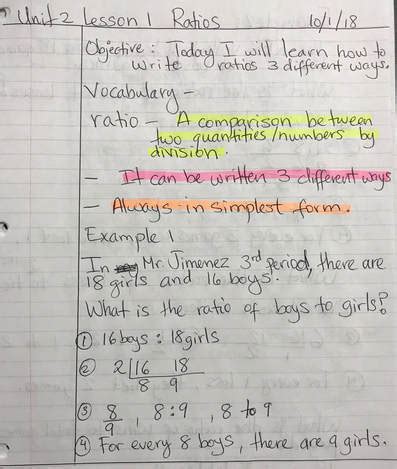 Unit 2 Lesson 1 Ratios 10/1/18
Objective: Today I will learn how to
write ratios 3 different ways.
Vocabulary -
ratio - A comparison between
two quantities/numbers by
division.
- It can be written 3 different ways
- Always in simplest form.
Example 1
In Mr. Jimenez 3rd period, there are
18 girls and 16 boys.
What is the ratio of boys to girls?
① 16 boys : 18 girls
② 2 16 18
8 9
③ 8/9, 8:9, 8 to 9
④ For every 8 boys, there are 9 girls.